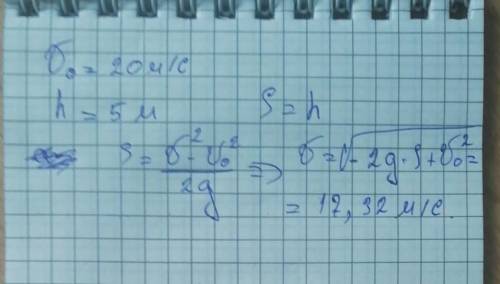 υ₀ = 20 м/с
h = 5 м    S = h
S = (υ² - υ₀²)/2g => υ = √(-2g·S + υ₀²) =
= 17,32 м/с.